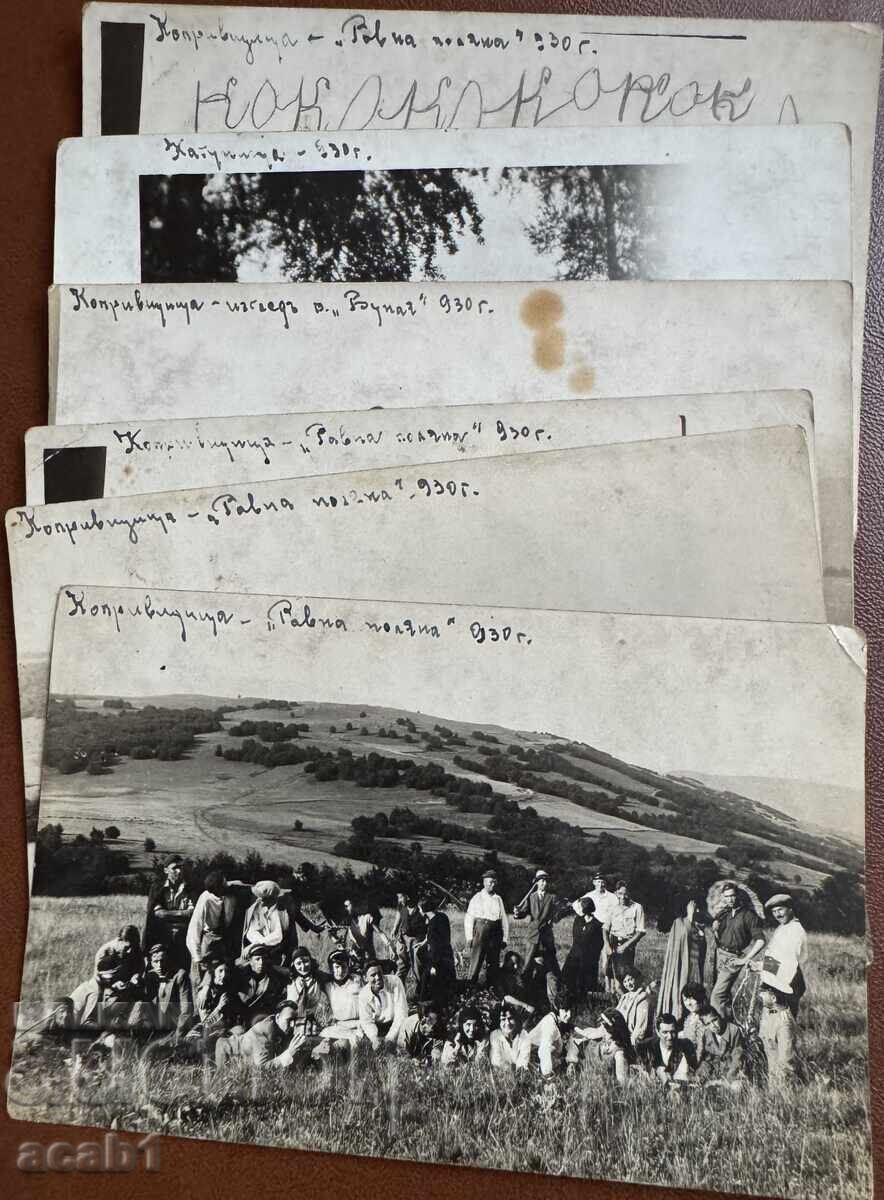 Копривщица - „Равна поляна“ 930 г.
КОКОКОКОКОК
Хатуница - 930 г.
Копривщица - изгледъ в. „Вулах“ 930 г.
Копривщица - „Равна поляна“ 930 г.
Копривщица - „Равна поляна“ 930 г.
Копривщица - „Равна поляна“ 930 г.
acab1